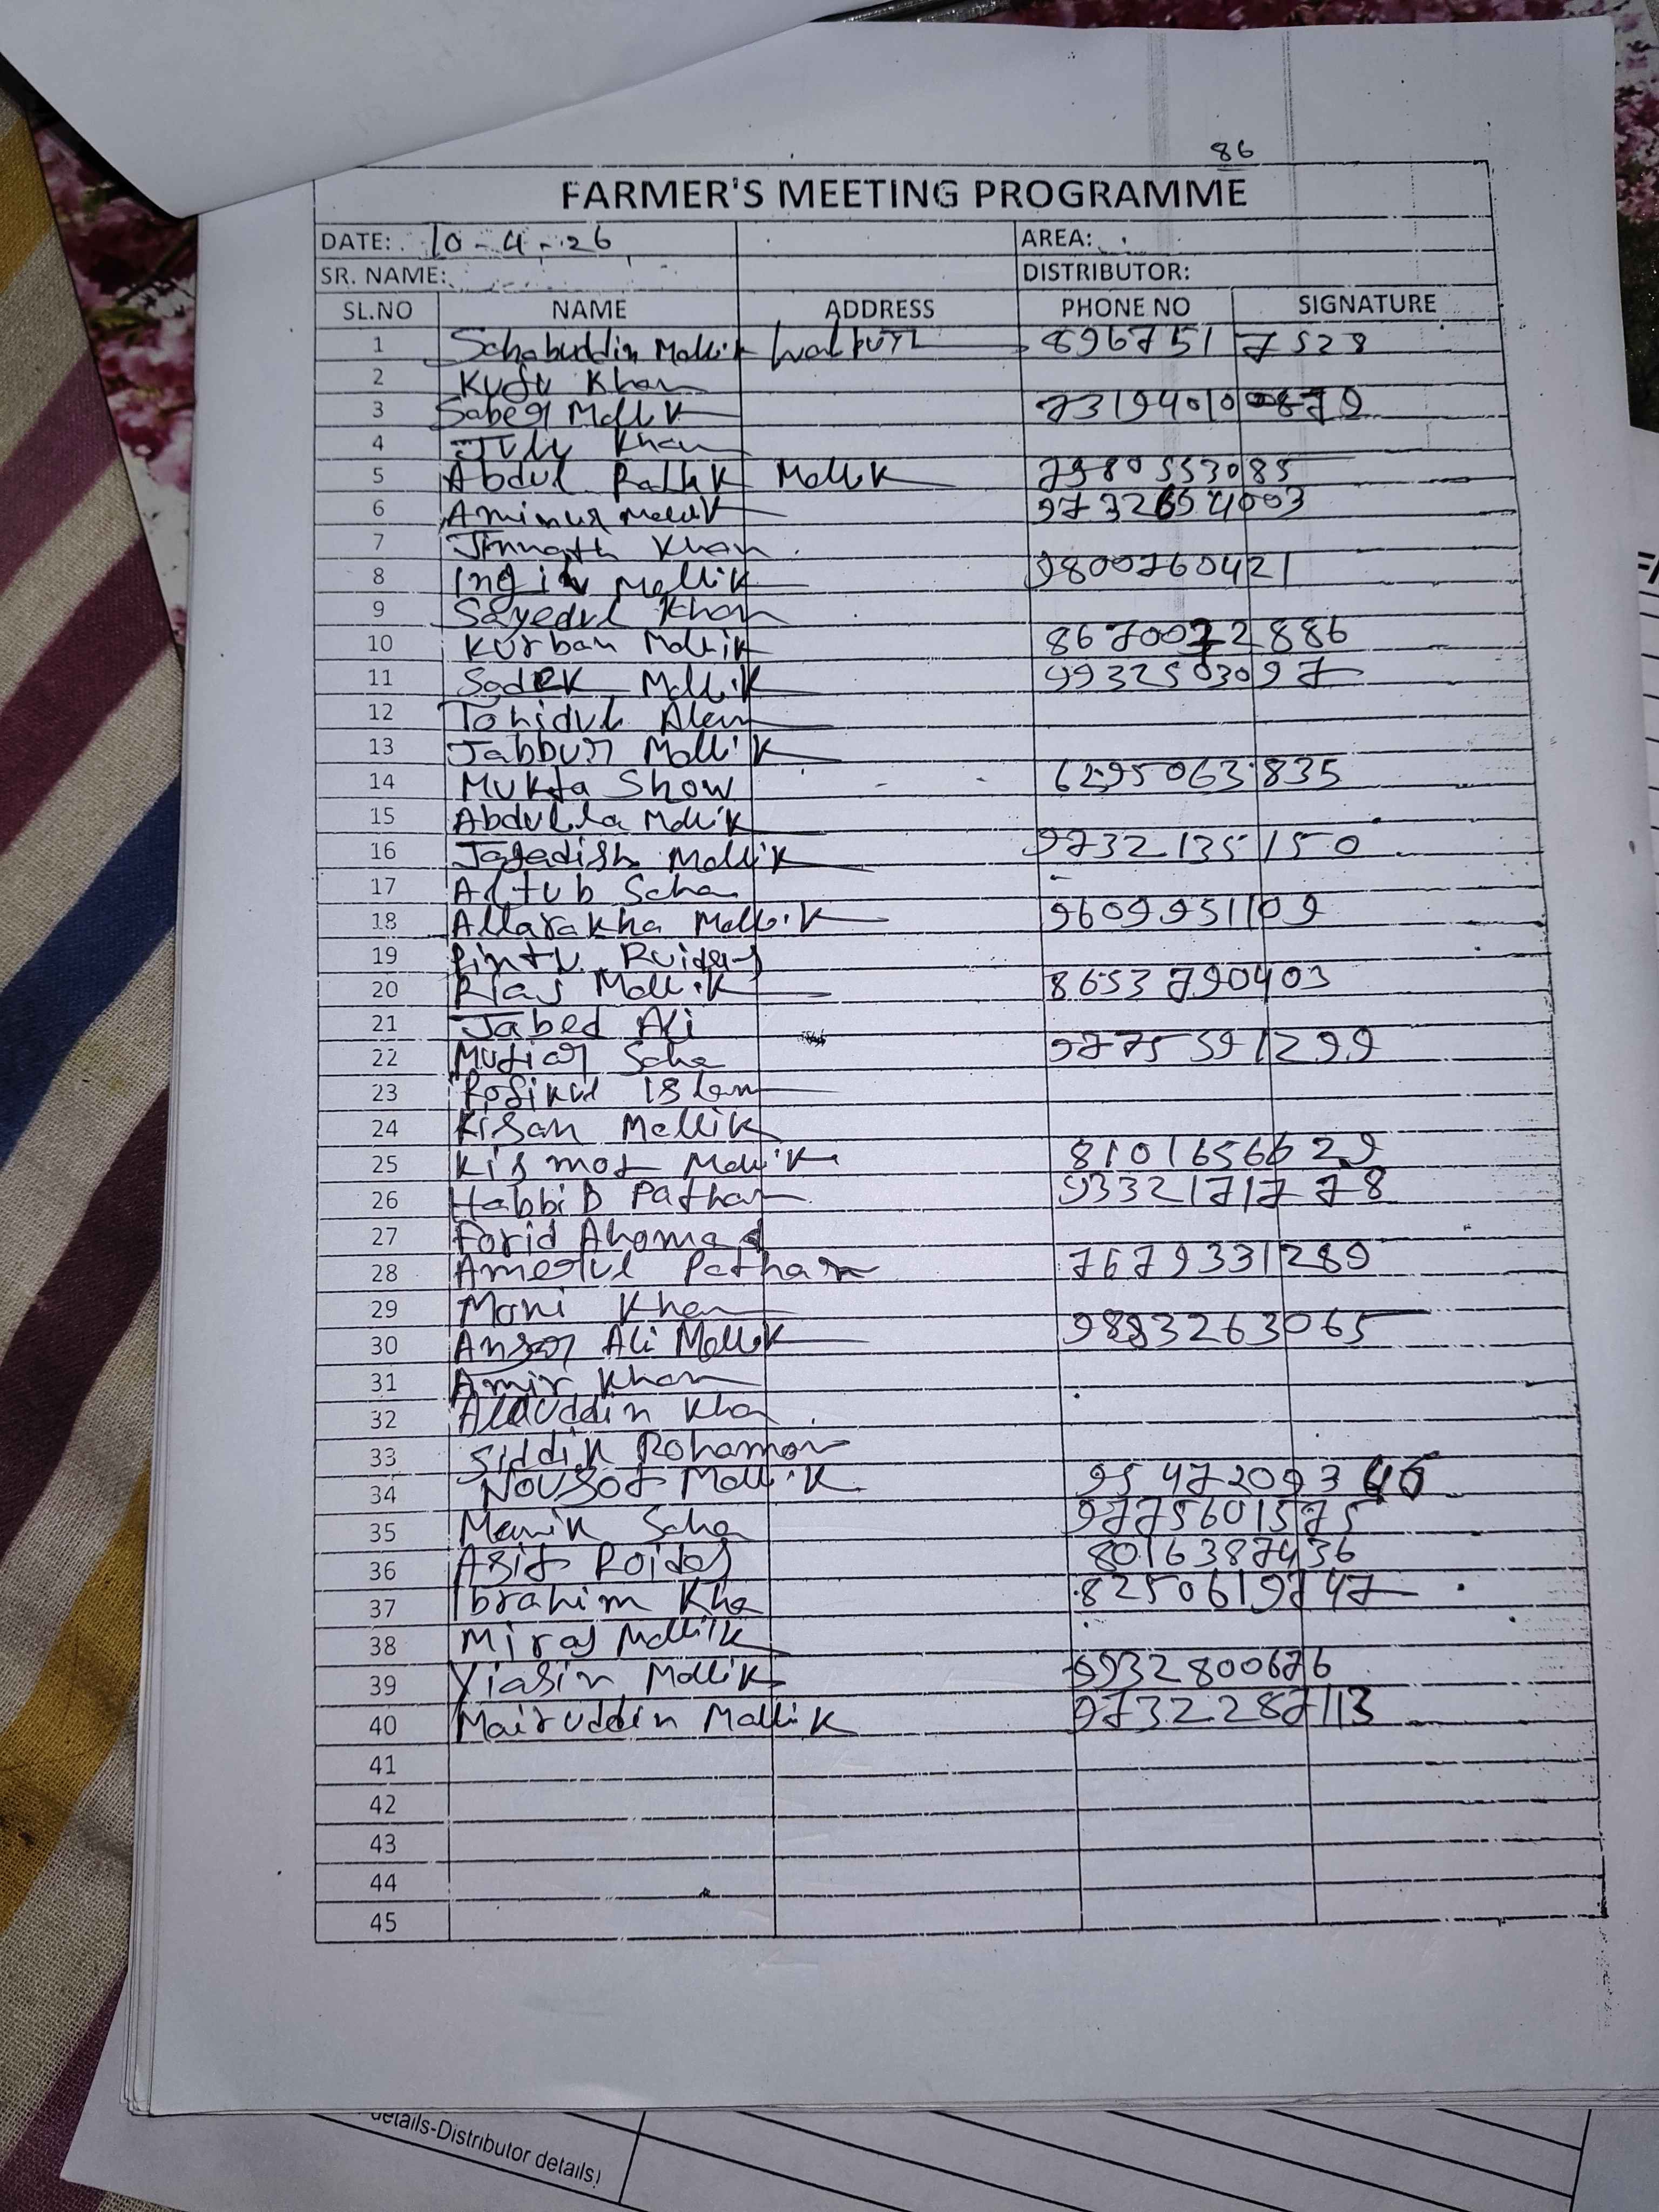 86
FARMER'S MEETING PROGRAMME
DATE: 10-4-26 AREA:
SR. NAME: DISTRIBUTOR:
SL.NO NAME ADDRESS PHONE NO SIGNATURE
1 Sahabuddin Mallik 8967517528
2 Khan
3 Saber Mallik
4 July Khan
5 Abdul Mallik 7980553085
6 Aminur Mallik
7 Jinnath Khan
8 Mallik 9800760421
9 Sayedul Khan
10 Kurban Mallik
11 Sadek Mallik 9932503097
12 Tohidul Alam
13 Jabbur Mallik
14 Mukta Show 6295063835
15 Abdulla Mallik
16 Jagadish Mallik 9732135150
17 Altub Saha
18 Allarakha Mallik 9609951109
19 Pintu Ruidas
20 Riaj Mallik 8653790403
21 Jabed Ali
22 Mutiar Saha 9775591299
23 Rofikul Islam
24 Kisan Mallik
25 Kismot Mallik 8101656629
26 Habbib Pathan 9332171778
27 Forid Ahomad
28 Amerul Pathan 7679331289
29 Moni Khan
30 Ansar Ali Mallik 9883263065
31 Amir Khan
32 Alauddin Kha
33 Siddik Rohaman
34 Nousot Mallik
35 Manik Saha 9775601575
36 Asit Roidas 8016387436
37 Ibrahim Kha 8250619747
38 Miraj Mallik
39 Yiasin Mallik 9932800676
40 Mairuddin Mallik 9732287113
41
42
43
44
45
details-Distributor details)